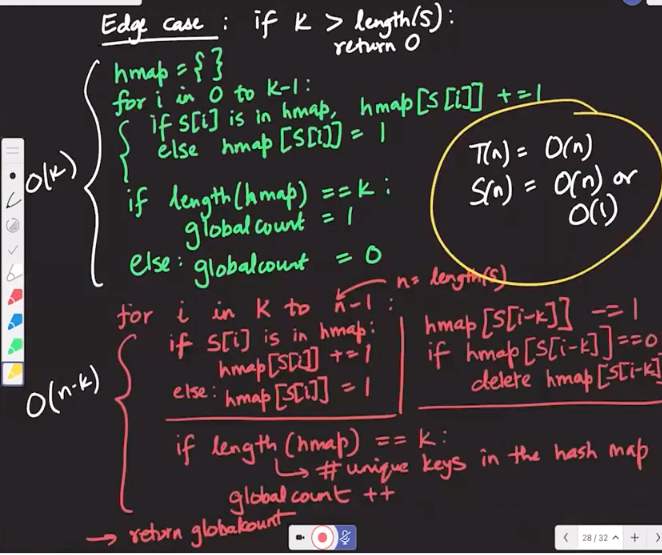 Edge case : if K > length(s):
return 0
hmap = { }
for i in 0 to k-1:
if s[i] is in hmap, hmap[s[i]] +=1
else hmap[s[i]] = 1
if length(hmap) == k :
globalcount = 1
else: globalcount = 0
O(k)
T(n) = O(n)
S(n) = O(n) or
O(1)
n = length(s)
for i in K to n-1 :
if s[i] is in hmap:
hmap[s[i]] += 1
else: hmap[s[i]] = 1
hmap[s[i-k]] -= 1
if hmap[s[i-k]]==0
delete hmap[s[i-k]
O(n-k)
if length (hmap) == k :
↳ # unique keys in the hash map
globalcount ++
→ return globalcount
28 / 32